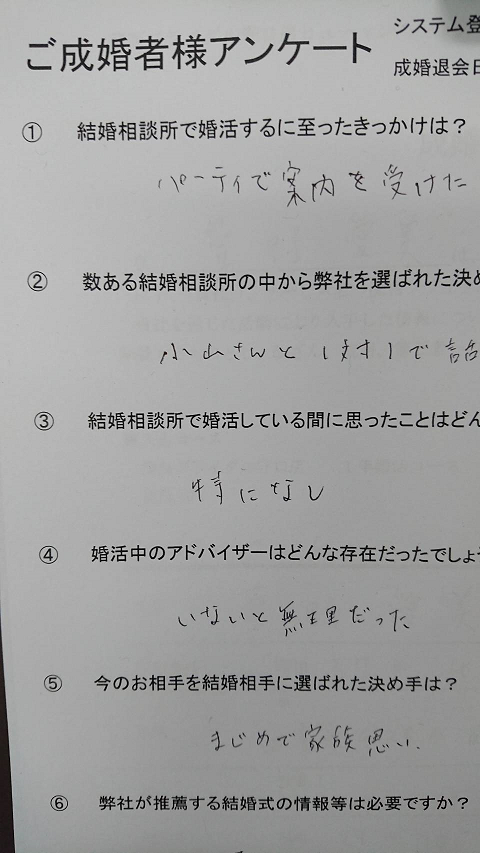 ご成婚者様アンケート
システム登
成婚退会日
① 結婚相談所で婚活するに至ったきっかけは？
パーティで案内を受けた
② 数ある結婚相談所の中から弊社を選ばれた決め
小山さんと1対1で話
③ 結婚相談所で婚活している間に思ったことはどん
特になし
④ 婚活中のアドバイザーはどんな存在だったでしょ
いないと無理だった
⑤ 今のお相手を結婚相手に選ばれた決め手は？
まじめで家族思い.
⑥ 弊社が推薦する結婚式の情報等は必要ですか？